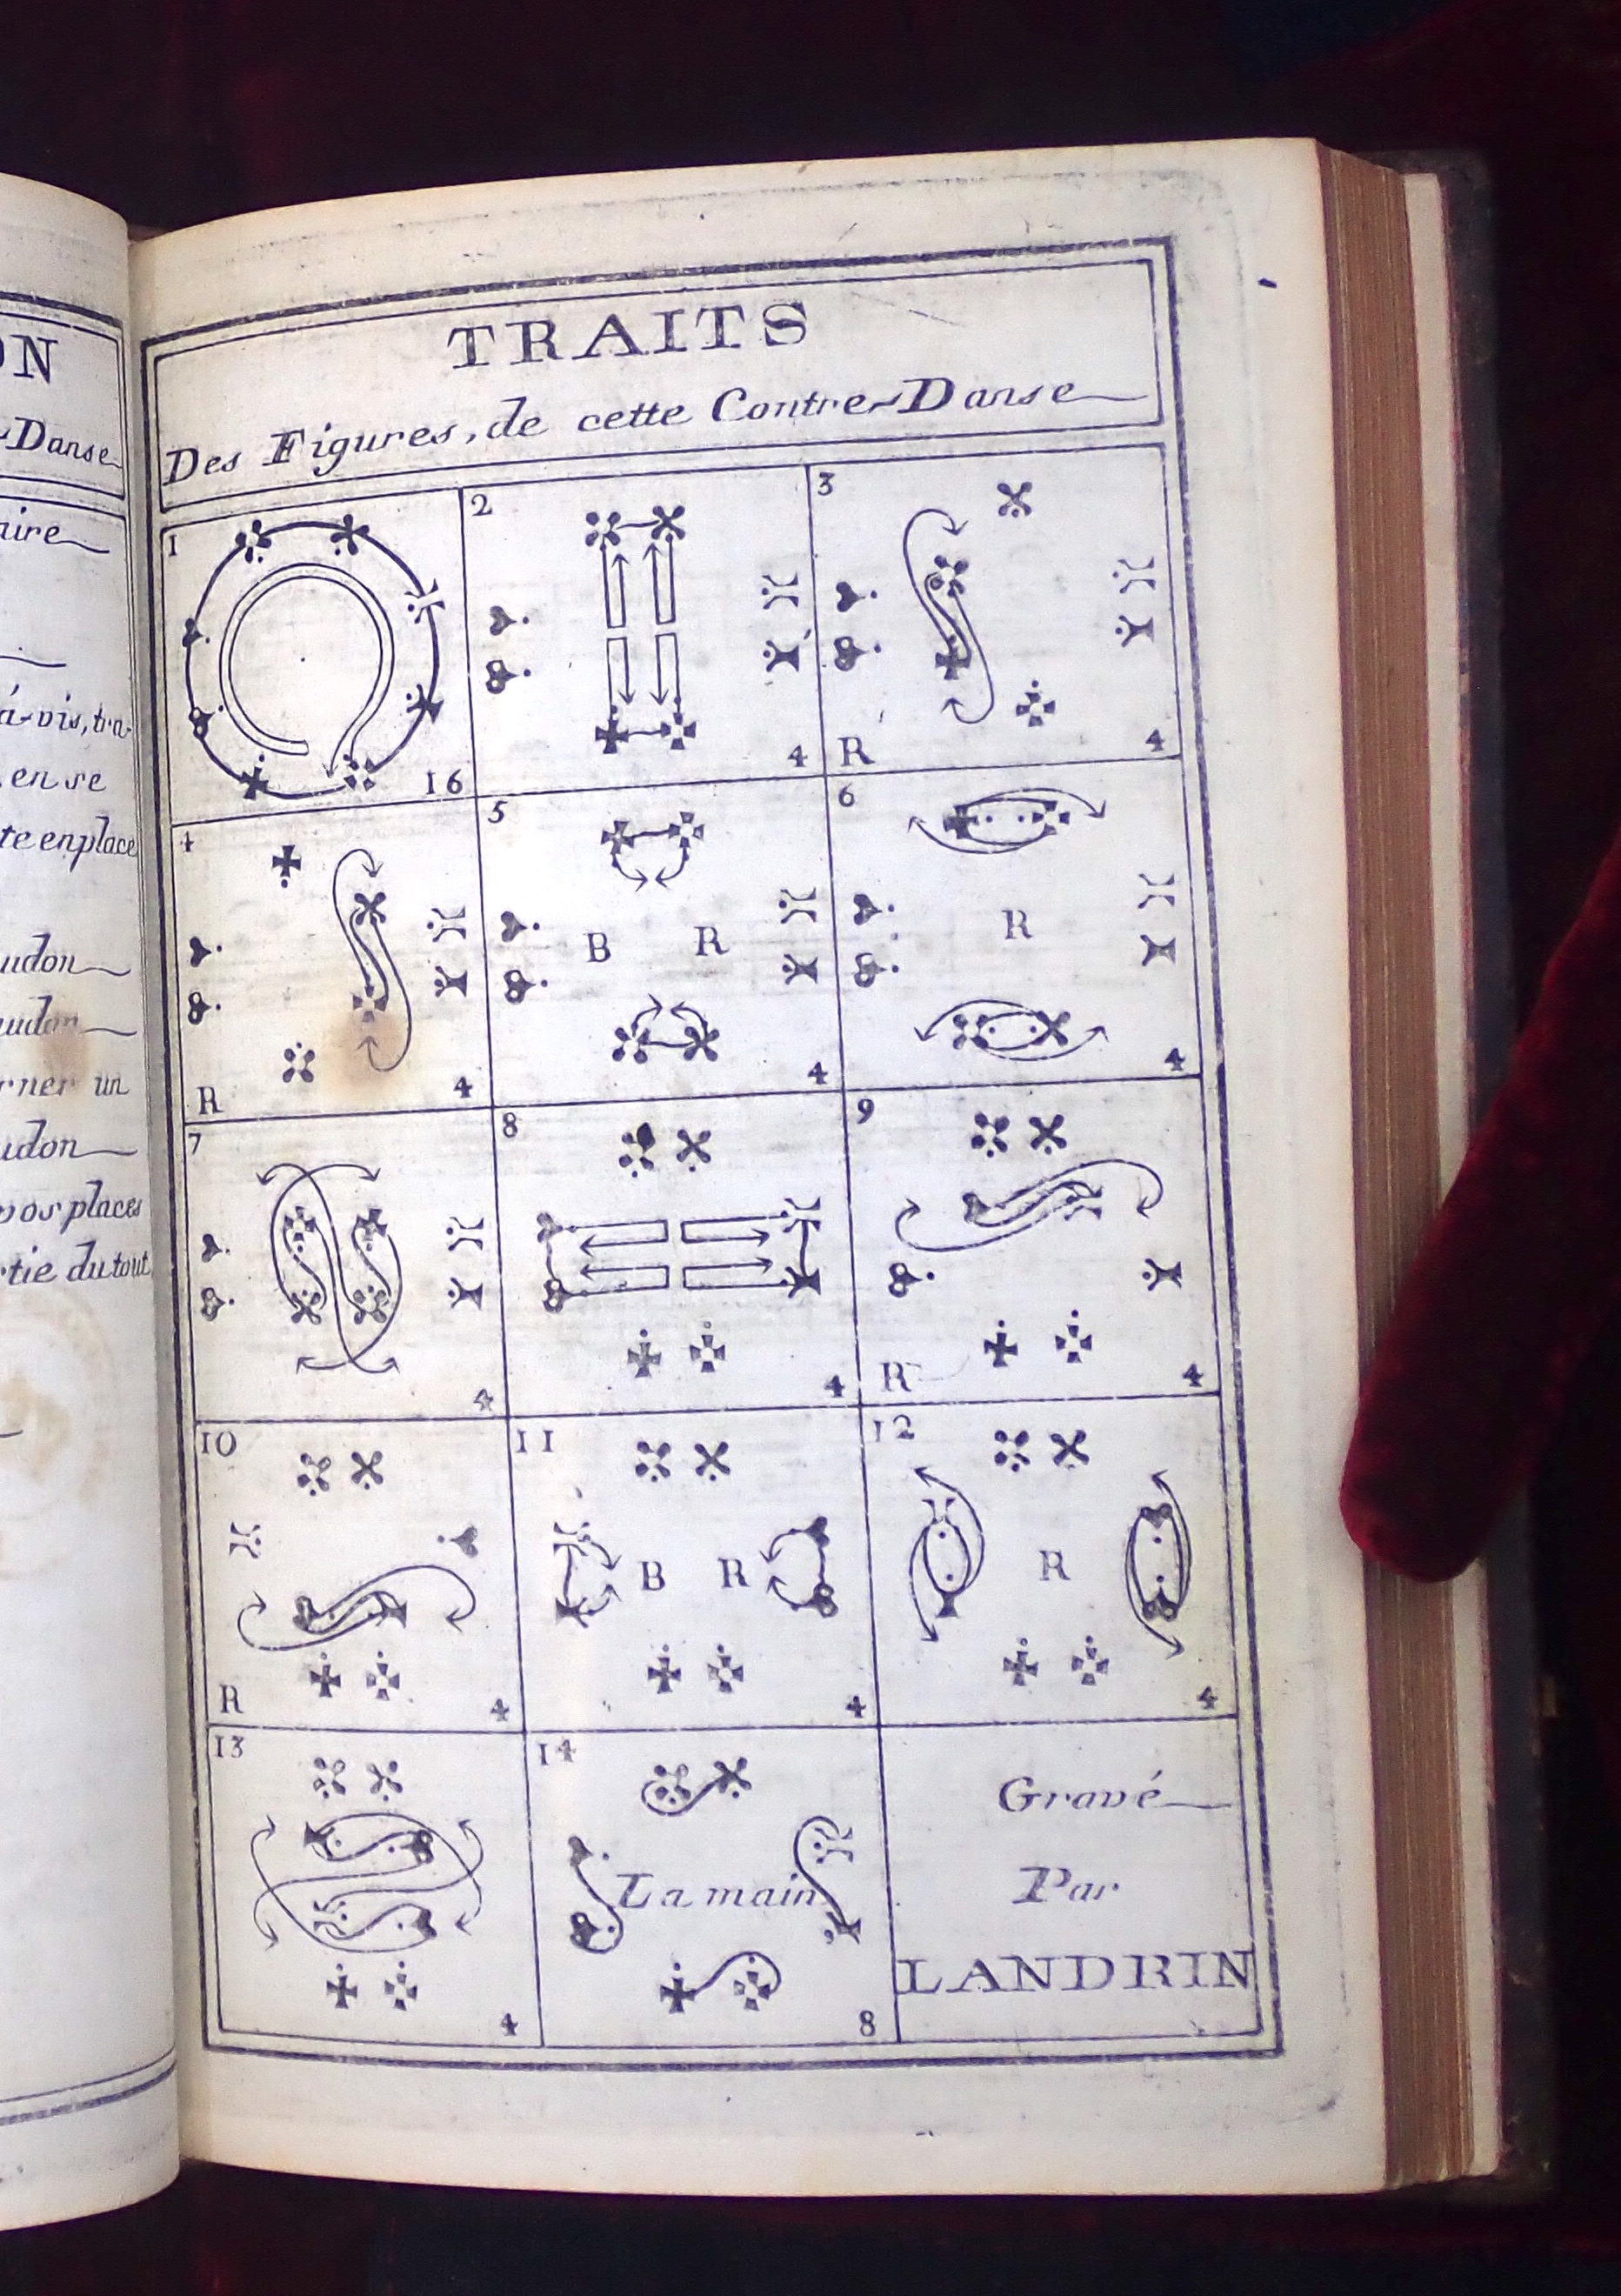 ON
-Danse
aire
á-vis, tra-
, en se
te enplace
udon
udon
rner un
udon
vos places
tie du tout
TRAITS
Des Figures, de cette Contre-Danse
1
16
2
4
3
R
4
4
R
4
5
B R
4
6
R
4
7
4
8
4
9
R
4
10
R
4
11
B R
4
12
R
4
13
4
14
La main
8
Gravé
Par
LANDRIN